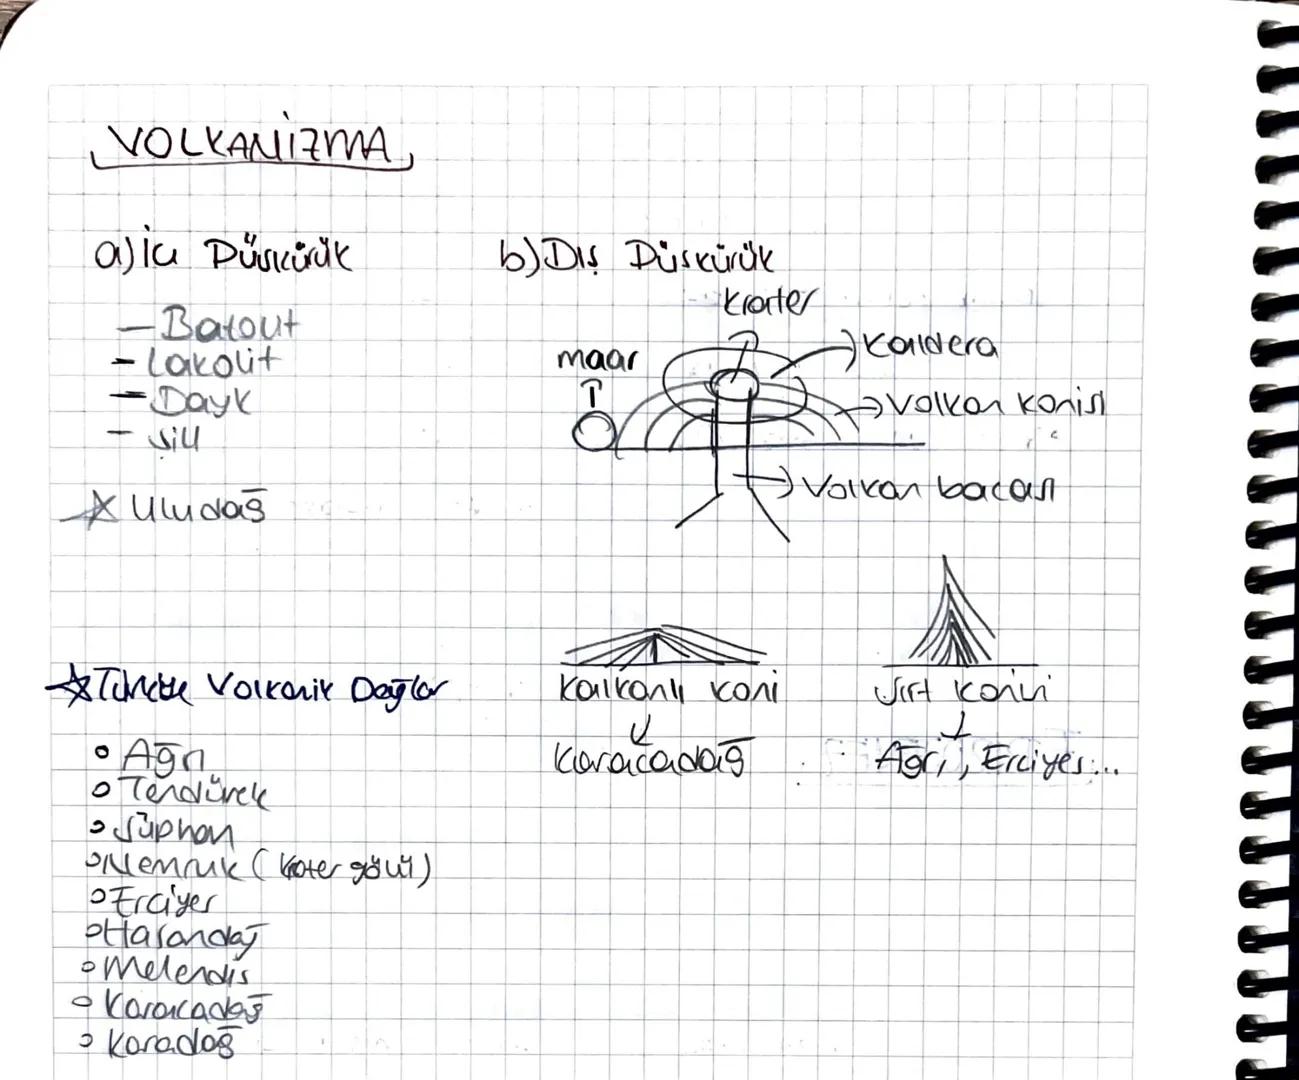 VOLKANİZMA
a) İç Püskürük
- Batolit
- Lakolit
- Dayk
- Sill
Uludağ
b) Dış Püskürük
Krater
Kaldera
maar
Volkan konisi
Volkan bacası
Kalkanlı koni
Karacadağ
Sırt konisi
Ağrı, Erciyes...
Volkanik Dağlar
Ağrı
Tendürek
Süphan
Nemruk (krater gölü)
Erciyer
Hasandağ
Melendis
Karacadağ
Karadağ